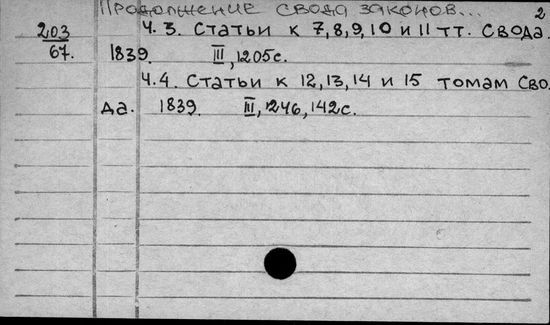 Продолжение свода законов... 2
203 Ч.3. Статьи к 7,8,9,10 и 11 тт. Свода.
67. 1839. III, 1205с.
Ч.4. Статьи к 12,13,14 и 15 томам Сво.
да. 1839. III, 1246, 142с.